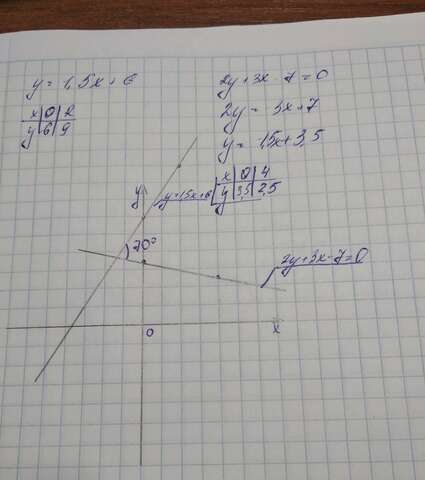 y = 1,5x + 6
x 0 2
y 6 9
2y + 3x - 7 = 0
2y = 3x + 7
y = 1,5x + 3,5
x 0 4
y 3,5 2,5
y
y=1,5x+6
70°
2y+3x-7=0
0
x